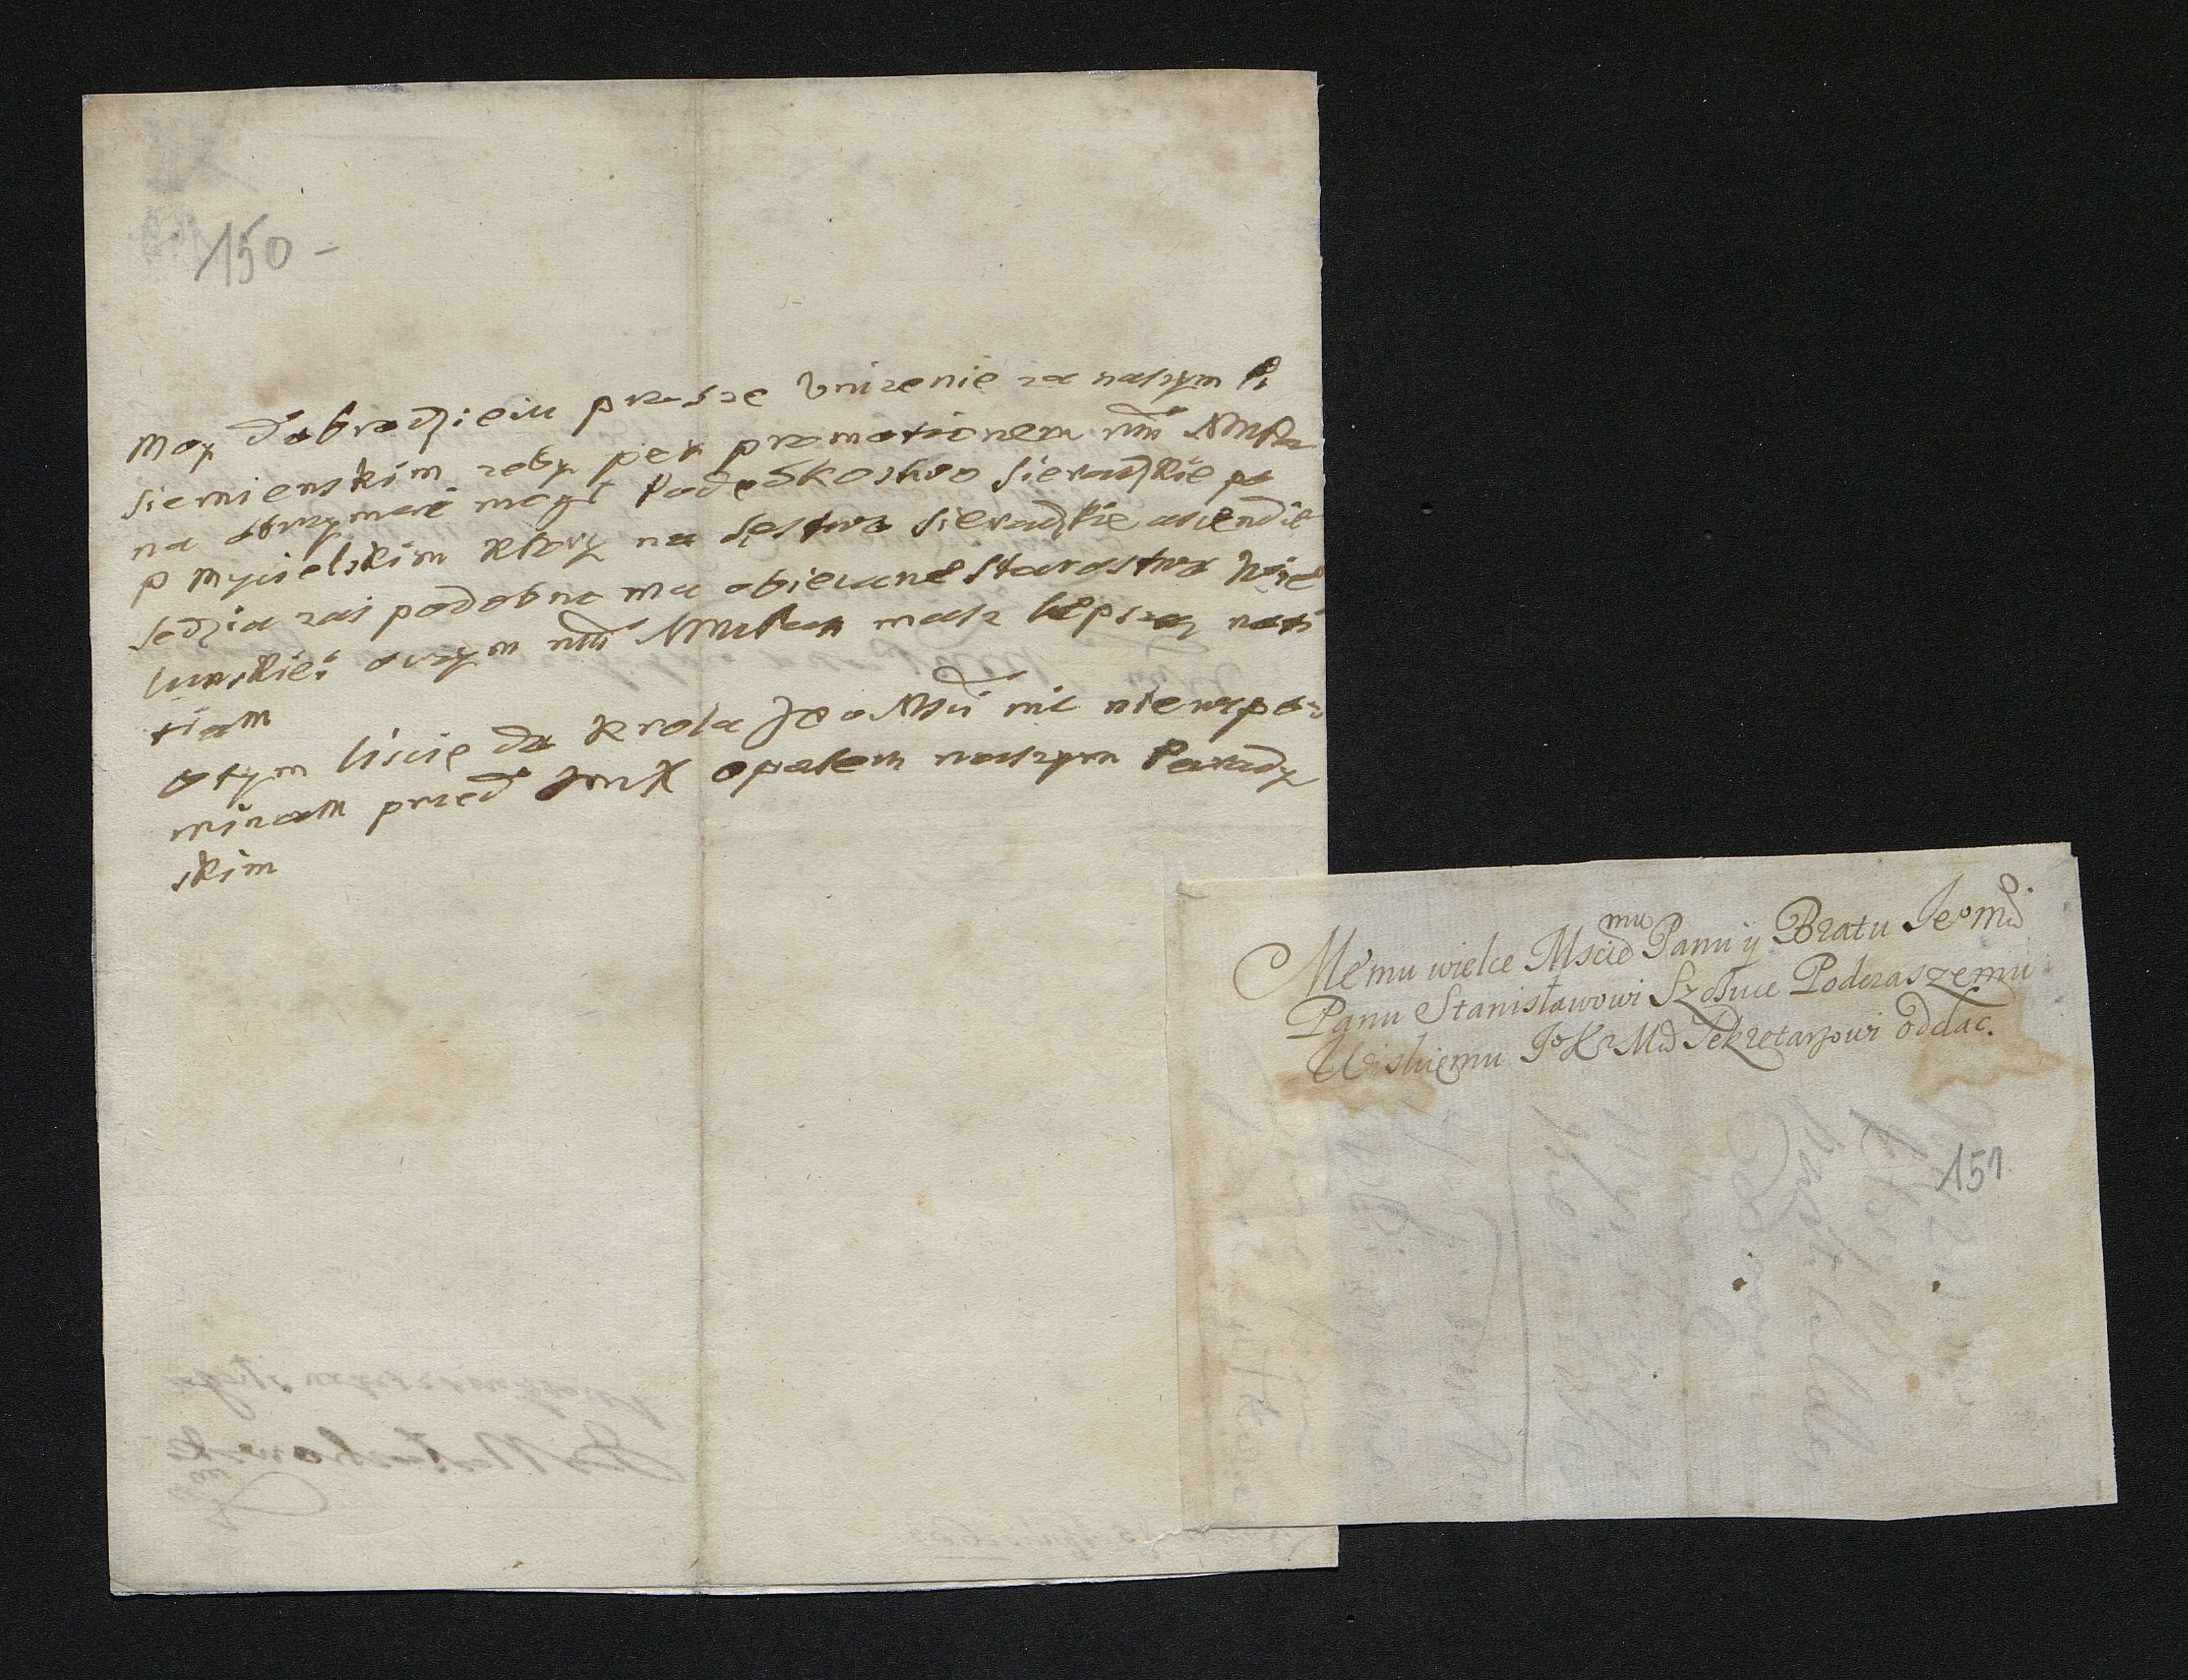 150 -
Moy dobrodzieiu prosze Vnizenie za naszym P.
Siemienskim zeby per promotionem
na otrzymac mogl Podsekostwo Sieradzkie po
P Mycielskim ktory na Sestwo Sieradzkie ascendit
Sedzia zas podobno ma obiecane Starostwo Wie
lunskie: o czym masz lepszą noti
tiam
o tym liscie do Krola nic niewspo-
minam przed opatem naszym Parady
skim
Memu wielce Mscie mu Panu ÿ Bratu Jeomci
Panu Stanisławowi Szołuce Podczaszemu
Wiskiemu Jo Kr Mci Sekretarzowi oddac.
151